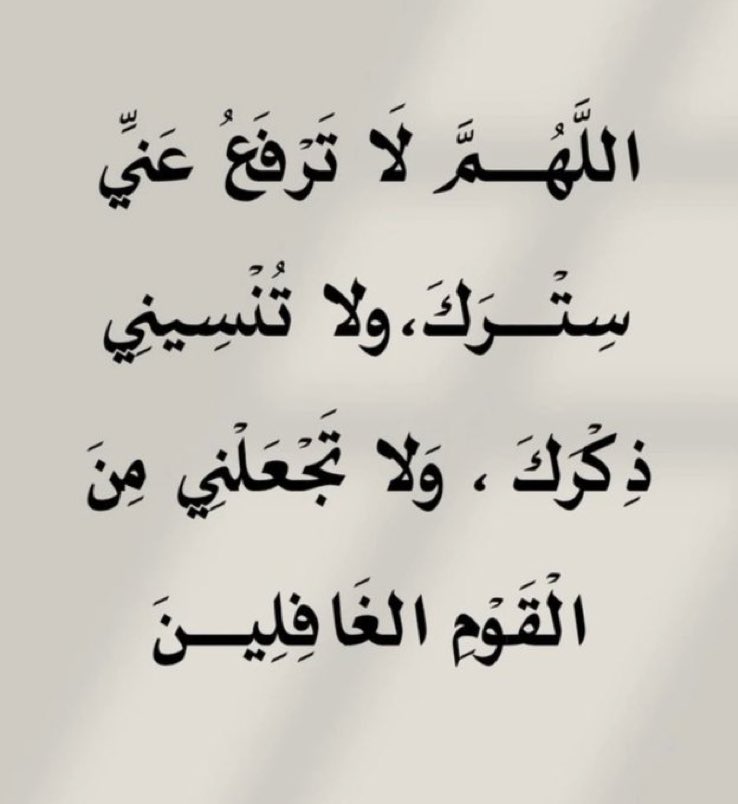 اللَّهُـــمَّ لَا تَرْفَعُ عَنيِّ
سِتْـــرَكَ،ولا تُنْسِينِي
ذِكْرَكَ ، وَلا تَجْعَلْنِي مِنَ
الْقَوْمِ الغَافِلِيـــنَ